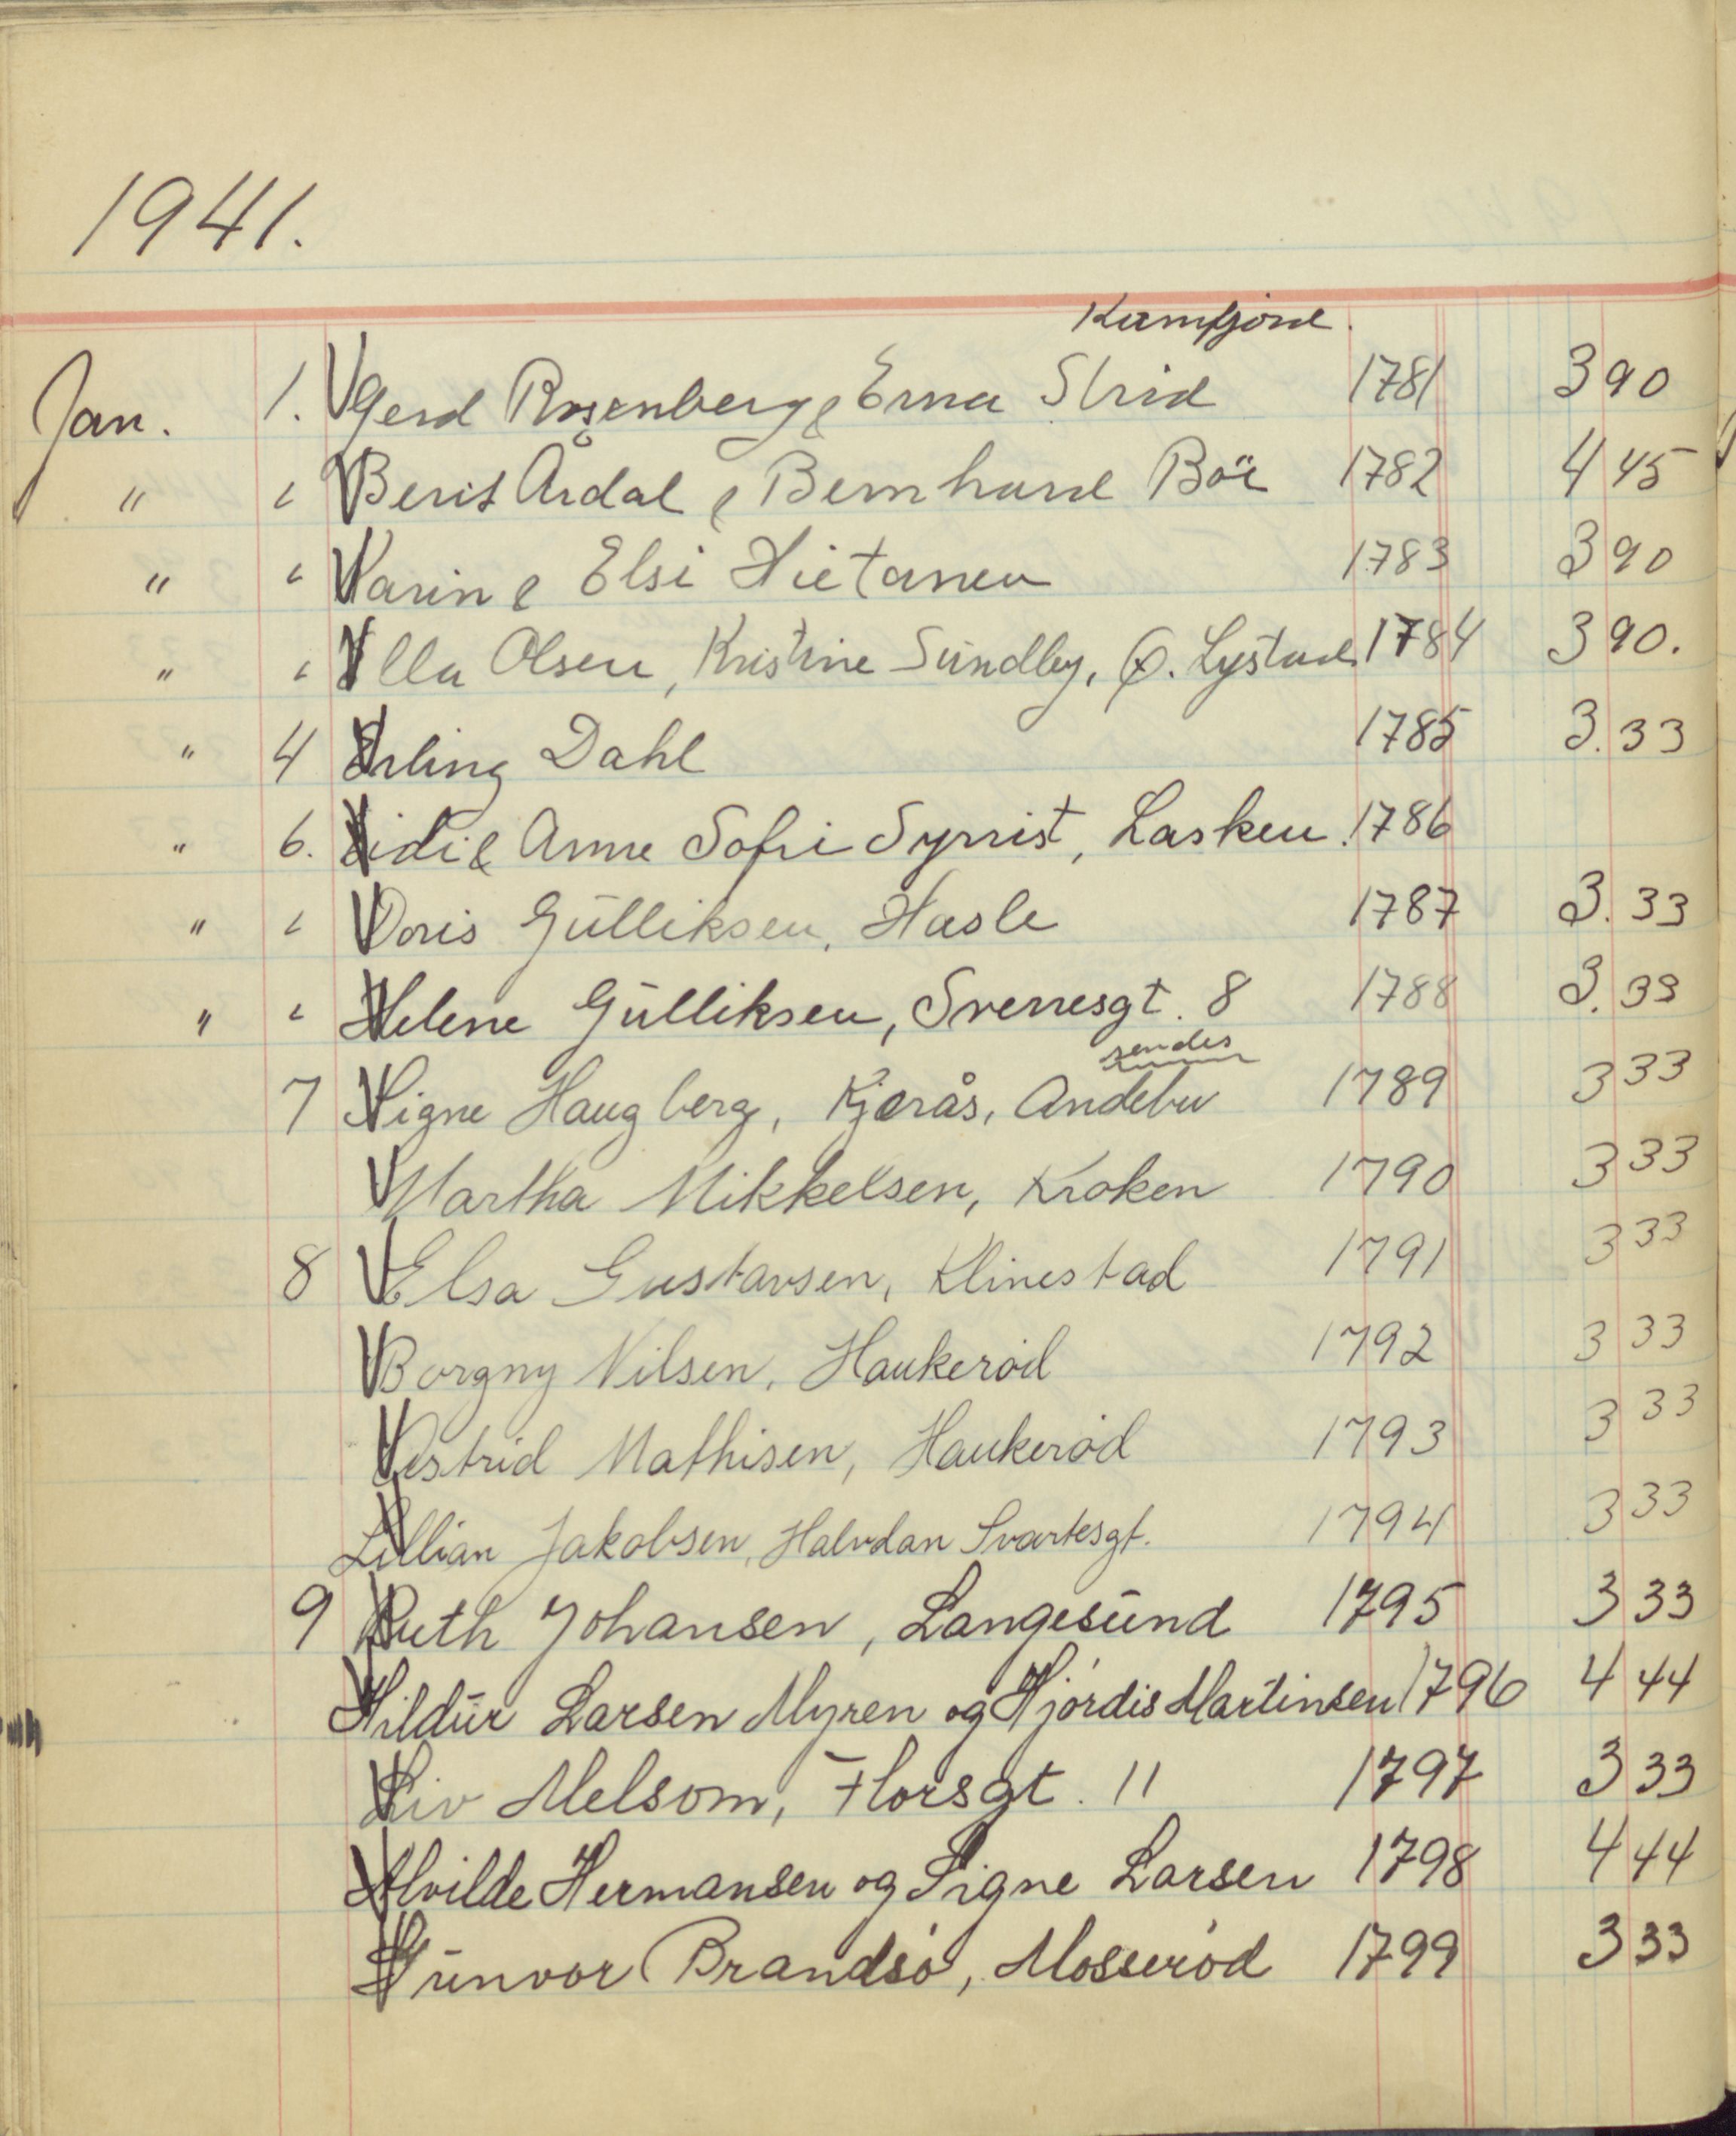 1941.
Kamfjord.
Jan. 1. Gerd Rosenberg & Erna Strid 1781 3 90
" " Berit Årdal & Bernhard Böe 1782 4 45
" " Karin & Elsi Hietanen 1783 3 90
" " Ella Olsen, Kristine Sundby, O. Lystad 1784 3 90.
" 4 Erling Dahl 1785 3. 33
" 6. Lidi & Anne Sofi Syrrist, Lasken. 1786
" " Doris Gulliksen, Hasle 1787 3. 33
" " Helene Gulliksen, Sverresgt. 8 1788 3. 33
sendes
7 Signe Haugberg, Kjærås, Andebu 1789 3 33
Martha Mikkelsen, Kroken 1790 3 33
8 Elsa Gustavsen, Klinestad 1791 3 33
Borgny Nilsen, Haukeröd 1792 3 33
Astrid Mathisen, Haukeröd 1793 3 33
Lillian Jakobsen, Halvdan Svartesgt. 1794 3 33
9 Ruth Johansen, Langesund 1795 3 33
Hildur Larsen Myren og Hjördis Martinsen 1796 4 44
Liv Melsom, Thorsgt. 11 1797 3 33
Alvilde Hermansen og Signe Larsen 1798 4 44
Gunvor Brandsö, Mosseröd 1799 3 33